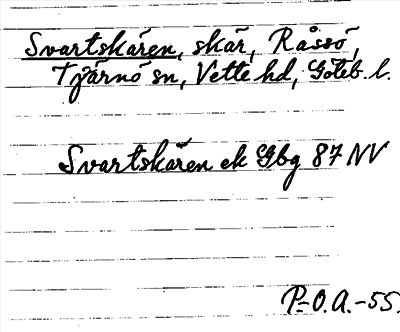 Svartskären, skär, Råssö,
Tjärnö sn, Vette hd, Göteb. l.
Svartskären ek Gbg 87 NV
P.-O.A.-55.